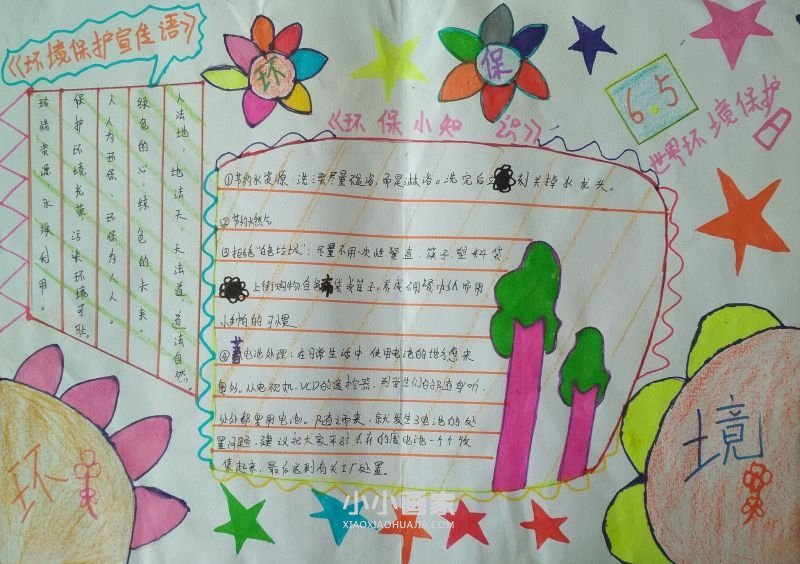 《环境保护宣传语》
环
保
6.5
世界环境保护日
人法地，地法天，天法道，道法自然。
绿色的心，绿色的未来。
人人为环保，环保为人人。
保护环境光荣污染环境可耻。
珍惜资源永续利用。
《环保小知识》
①节约水资源：洗澡尽量
而是淋浴。洗完后
刻关掉水龙头。
②节约天然气
③拒绝"白色垃圾"：尽量不用一次性餐盒、筷子、塑料袋
上街购物自备布袋或篮子。养成用餐巾纸而用
小手帕的习惯
④蓄电池处理：在日常生活中，使用电池的地方愈来
愈多。从电视机、VCD的遥控器，到学生们的随身听，
处处都要用电池。随之而来，就发生了电池的处
置问题，建议把大家平时丢弃的废电池一个个收
集起来，最后送到有关工厂处置。
环
境
小小画家
XIAOXIAOHUAJIA.COM